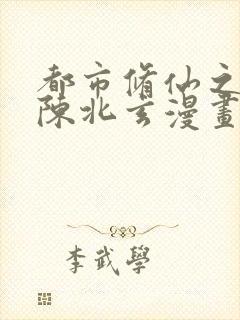 都市脩仙之
陳北玄漫畫
李武學